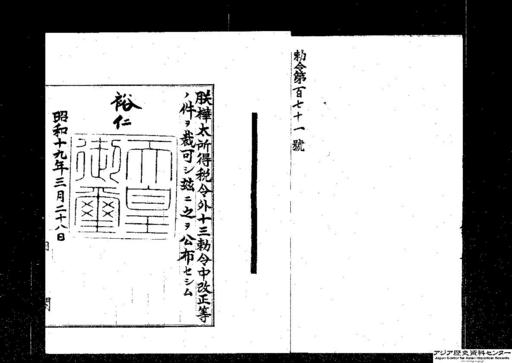 勅令第百七十一號
朕樺太所得税令外十三勅令中改正等
ノ件ヲ裁可シ玆ニ之ヲ公布セシム
裕仁
天皇御璽
昭和十九年三月二十八日
アジア歴史資料センター
Japan Center for Asian Historical Records